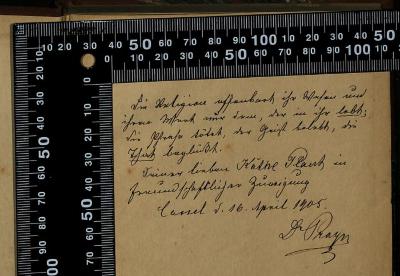 10 20 30 40 50 60 70 80 90 100 10 20 30 40 50
10 20 30 40 50 60 70 80 90 100
Die Religion offenbart ihr Wesen und
ihren Wert nur dem, der in ihr lebt;
die Phrase tötet, der Geist belebt, die
That beglückt.
Seiner lieben Käthe Plaut in
freundschaftlicher Zuneigung
Cassel d. 16. April 1905.
Dr Prager